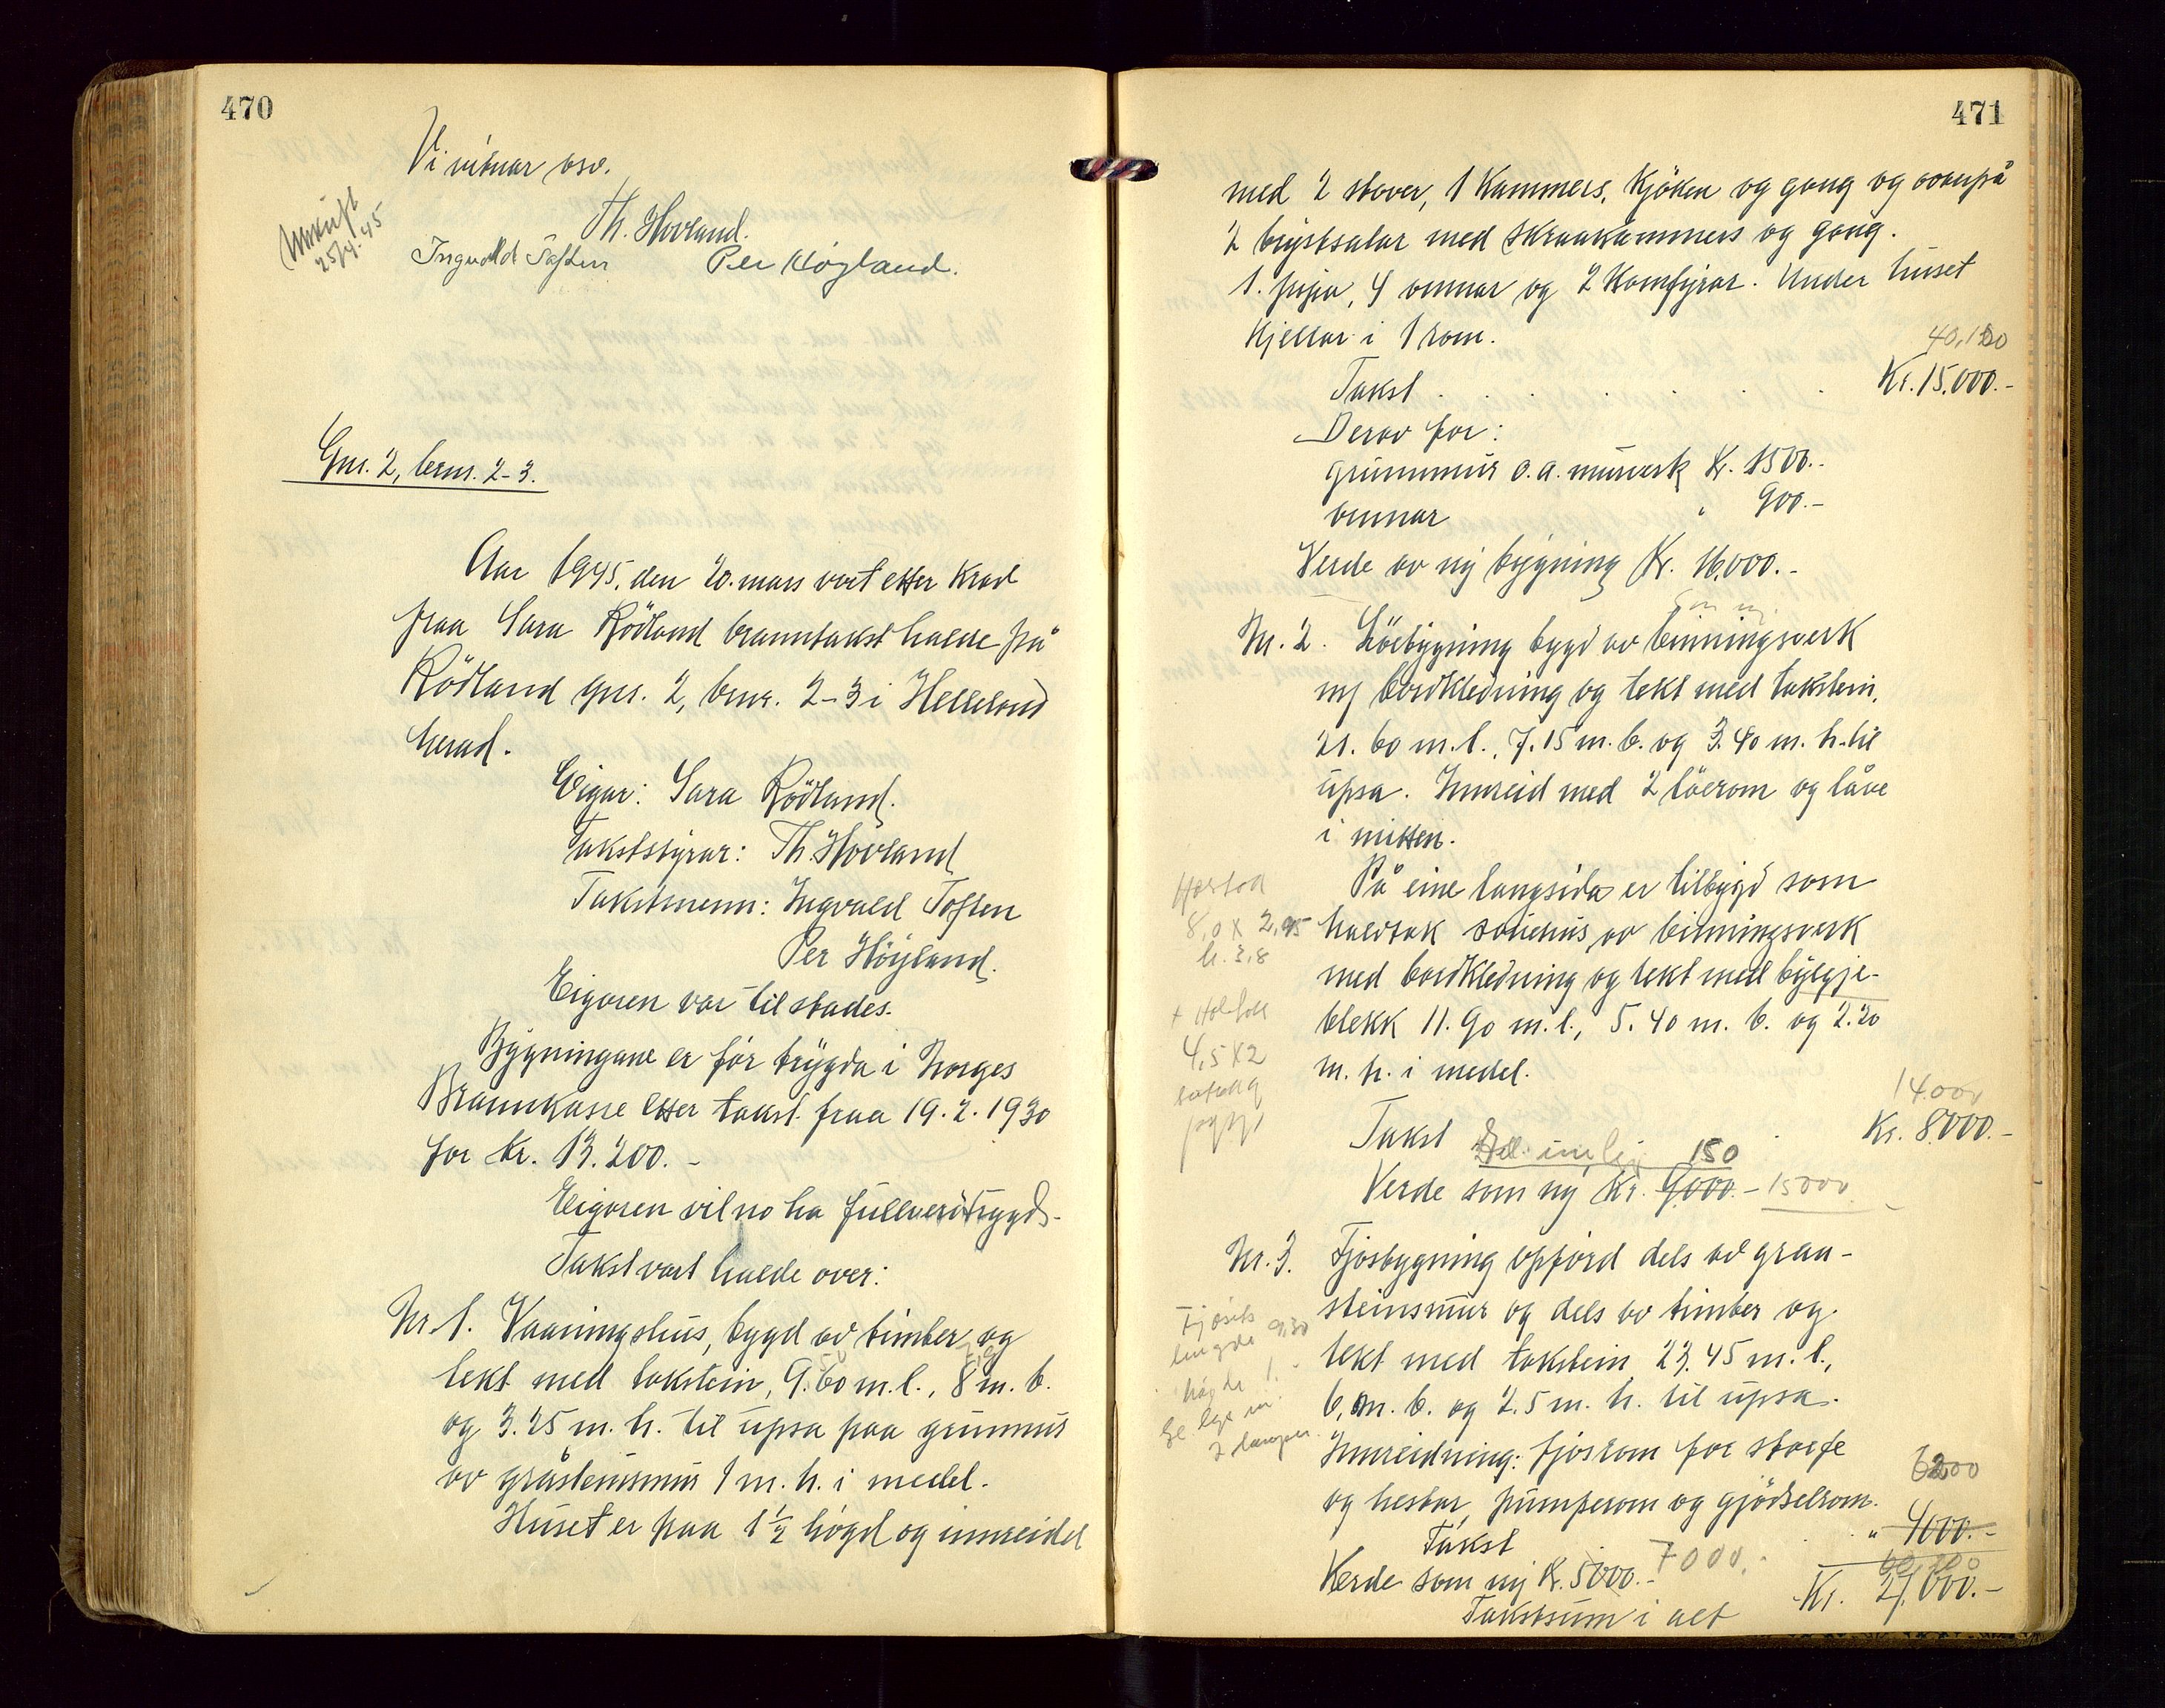 470
Vi vitnar osv.
Utskrift
25/4. 45
Th. Hovland.
Ingvald Toften Per Høyland.
Gnr. 2, brnr. 2-3.
Aar 1945, den 20. mars vart etter krav
fraa Sara Rödland branntakst halde på
Rödland gnr. 2, brnr. 2-3 i Helleland
herad.
Eigar: Sara Rödland.
Takststyrar: Th. Hovland
Takstmenn: Ingvald Toften
Per Höyland.
Eigaren var til stades.
Bygningane er för trygda i Norges
Brannkasse etter takst fraa 19.2.1930
for kr. 13.200.-
Eigaren vil no ha fullverditrygd.
Takst vart halde over:
Nr. 1. Vaaningshus, bygd av timber og
tekt med takstein, 9.60 m.l., 8 m. b.
og 3.25 m. h. til upsa paa grunnmur
av gråsteinsmur 1 m. h. i medel.
Huset er paa 1 1/2 högd og innreidd
471
med 2 stover, 1 kammers, kjöken og gang og ovanpå
2 brystsalar med skraakammers og gang.
1. pipa, 4 omnar og 2 komfyrar. Under huset
kjellar i 1 rom.
40,100
Takst . . . . . Kr. 15.000.-
Derav for:
grunnmur o.a. murverk Kr. 1500.-
omnar " 900.-
Verde av ny bygning Kr. 16.000.-
Nr. 2. Löebygning bygd av binningsverk
m/ bordkledning og tekt med takstein.
21.60 m.l., 7.15 m.b. og 3.40 m. h. til
upsa. Innreid med 2 löerom og låve
i mitten.
På eine langsida er tilbygd som
halvtak sauehus av binningsverk
med bordkledning og tekt med bylgje-
blekk 11.90 m.l., 5.40 m. b. og 2.20
m. h. i medel.
8,0 x 2,95
h. 3,8
4,5 x 2
14000
Takst . Kr. 8000.-
150
Verde som ny Kr. 9000.- 15000
Nr. 3. Fjösbygning oppförd dels av graa-
steinsmur og dels av timber og
tekt med takstein 23.45 m.l.,
6, m. b. og 2.5 m. h. til upsa.
Innreidning: fjösrom for storfe
og hestar, pumperom og gjödselrom.
Fjøsets
lengde 9,30
6200
Takst . . " 4000.-
Verde som ny Kr. 5000.- 7000.-
Takstsum i alt Kr. 27.000.-